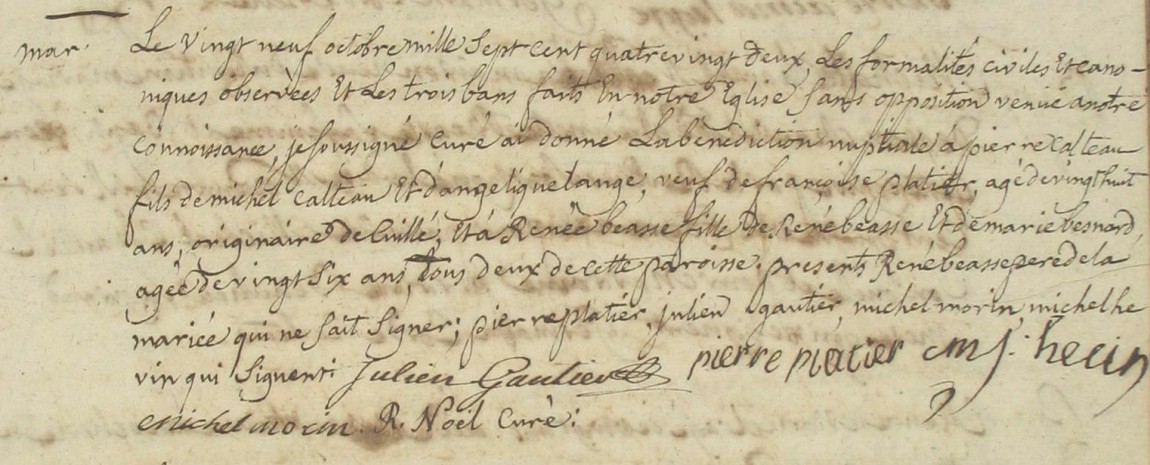 mar.
Le vingt neuf octobre mille sept cent quatre vingt deux, Les formalités civiles Et cano-
niques observées Et Les trois bans faits En notre Eglise sans opposition venüe a notre
connoissance, je soussigné curé ai donné La bénédiction nuptiale á pierre calteau
fils de michel calteau Et d'angelique lange, veuf de françoise platier, agé de vingt huit
ans, originaire de Cuillé, Et á Renée beasse fille de René beasse Et de marie besnard,
agée de vingt six ans, tous deux de cette paroisse. presents René beasse pere de la
mariée qui ne sait signer; pierre platier, julien gautier, michel morin, michel he
vin qui signent. Julien Gautier pierre platier m j. hevin
michel morin R. Noël curé.